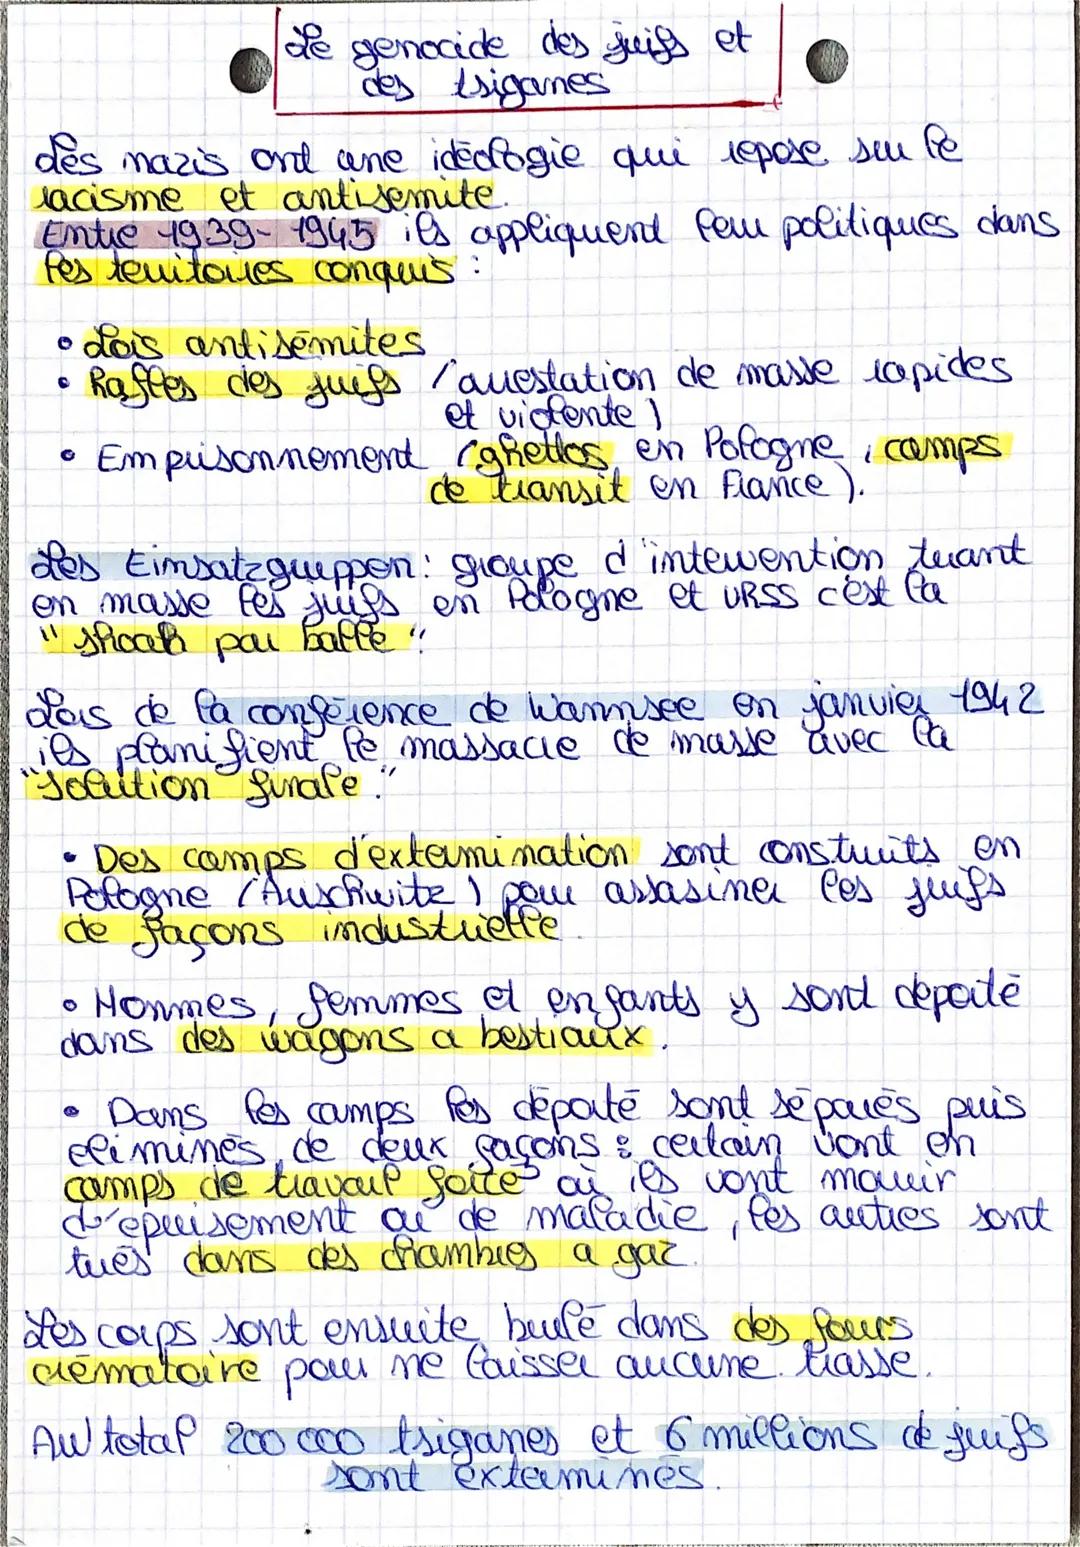 Le genocide des juifs et
des tsiganes
Les nazis ont une idéologie qui repose sur le
racisme et antisemite.
Entre 1939-1945 ils appliquent leur politiques dans
les territoires conquis :
• Lois antisémites
• Rafles des juifs (arrestation de masse rapides
et violente)
• Emprisonnement (ghettos en Pologne, camps
de transit en France).
Les Eimsatzgruppen : groupe d'intervention tuant
en masse les juifs en Pologne et URSS c'est la
"shoah par balle".
Lors de la conférence de Wannsee en janvier 1942
ils planifient le massacre de masse avec la
"solution finale".
• Des camps d'extermination sont construits en
Pologne (Auschwitz) pour assasiner les juifs
de façons industrielle.
• Hommes, femmes et enfants y sont déporté
dans des wagons a bestiaux.
• Dans les camps les déporté sont séparés puis
eliminés de deux façons : certain vont en
camps de travail forcé où ils vont mourir
d'epuisement ou de maladie, les autres sont
tués dans des chambres a gaz.
Les corps sont ensuite brulé dans des fours
crématoire pour ne laisser aucune trasse.
Au total 200 000 tsiganes et 6 millions de juifs
sont exterminés.